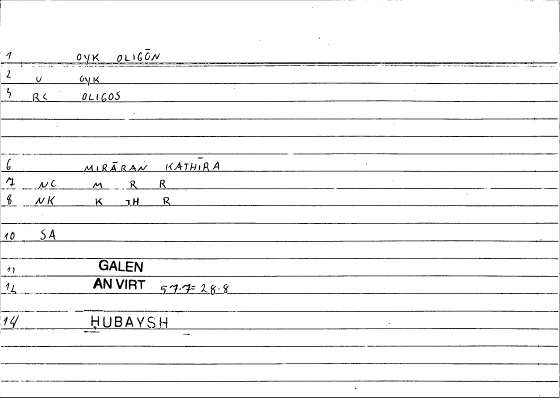 1 OYK OLIGŌN
2 U OYK
3 RC OLIGOS
6 MIRĀRAN KATHĪRA
7 NC M R R
8 NK K TH R
10 SA
11 GALEN
12 AN VIRT 57.7= 28.8
14 ḤUBAYSH